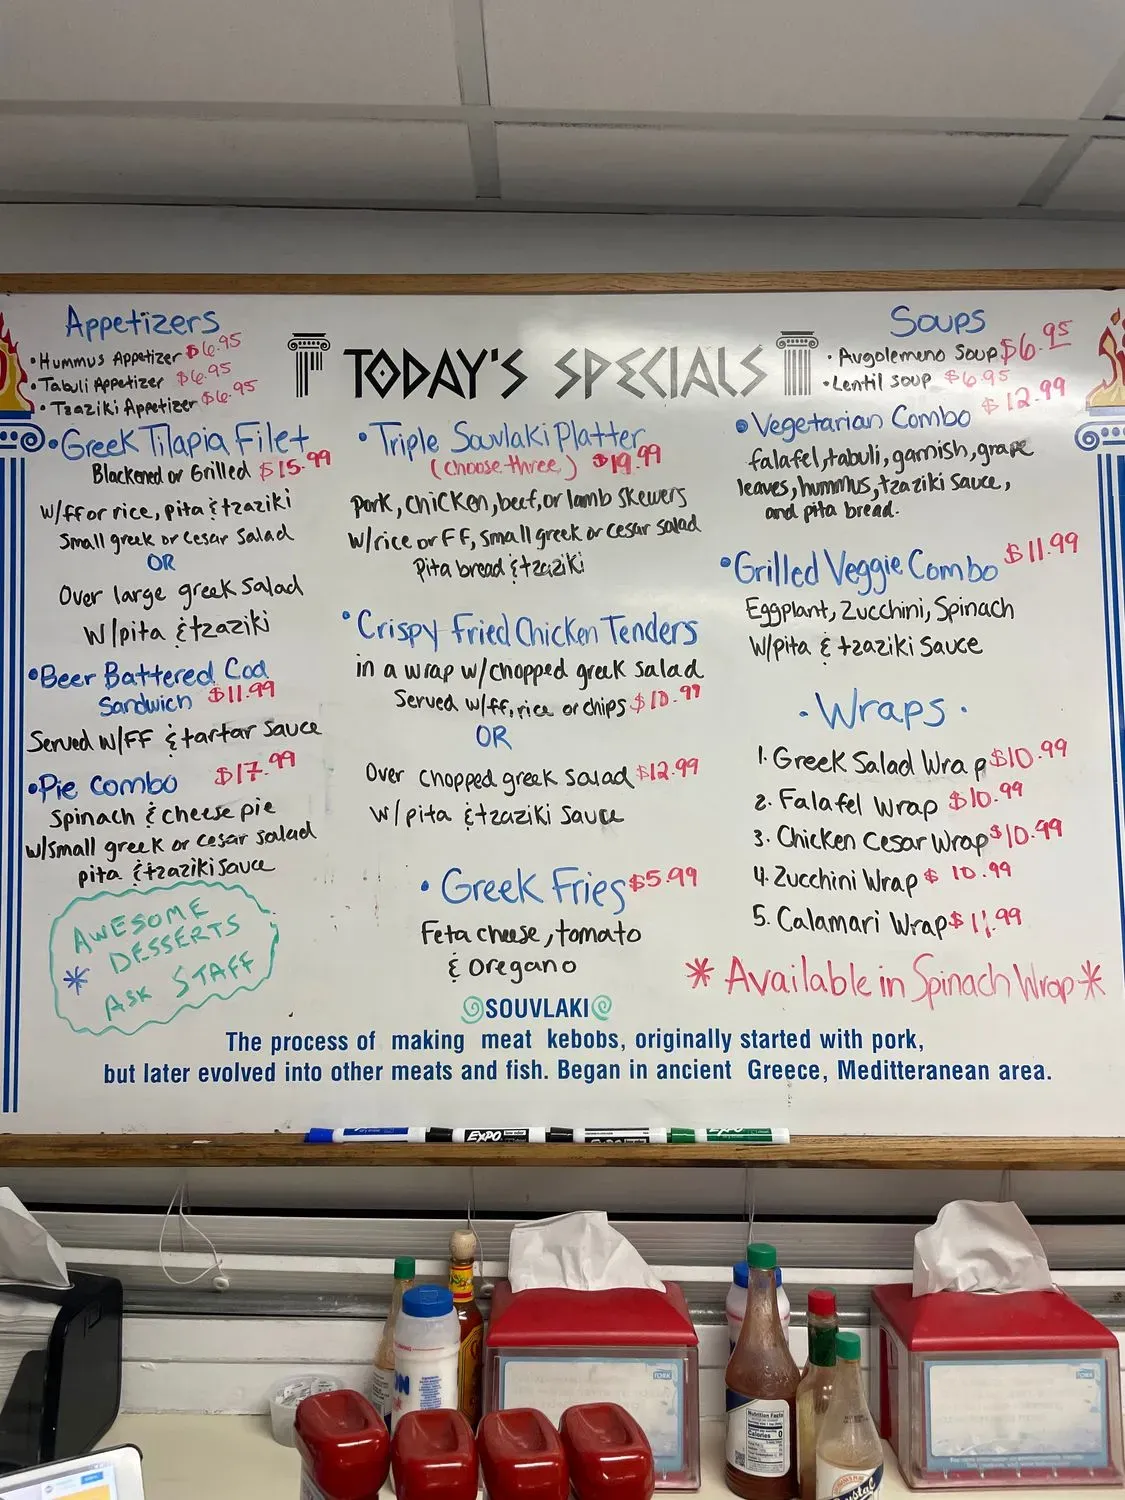 TODAY'S SPECIALS
Appetizers
• Hummus Appetizer $6.95
• Tabuli Appetizer $6.95
• Tzaziki Appetizer $6.95
• Greek Tilapia Filet
Blackened or Grilled $15.99
w/ff or rice, pita & tzaziki
Small greek or cesar salad
OR
Over large greek salad
w/pita & tzaziki
• Beer Battered Cod
Sandwich $11.99
Served w/FF & tartar sauce
• Pie Combo $17.99
Spinach & cheese pie
w/small greek or cesar salad
pita & tzaziki sauce
AWESOME
DESSERTS
* ASK STAFF
• Triple Souvlaki Platter
(choose three) $19.99
Pork, chicken, beef, or lamb skewers
w/rice or FF, small greek or cesar salad
Pita bread & tzaziki
• Crispy Fried Chicken Tenders
in a wrap w/chopped greek salad
Served w/ff, rice or chips $10.99
OR
Over chopped greek salad $12.99
w/pita & tzaziki sauce
• Greek Fries $5.99
Feta cheese, tomato
& oregano
Soups
• Avgolemeno Soup $6.95
• Lentil soup $6.95
• Vegetarian Combo $12.99
falafel, tabuli, garnish, grape
leaves, hummus, tzaziki sauce,
and pita bread.
• Grilled Veggie Combo $11.99
Eggplant, Zucchini, Spinach
w/pita & tzaziki sauce
• Wraps •
1. Greek Salad Wrap $10.99
2. Falafel Wrap $10.99
3. Chicken Cesar Wrap $10.99
4. Zucchini Wrap $10.99
5. Calamari Wrap $11.99
* Available in Spinach Wrap *
SOUVLAKI
The process of making meat kebobs, originally started with pork,
but later evolved into other meats and fish. Began in ancient Greece, Meditteranean area.
EXPO
EXPO
TORK
TORK
Nutrition Facts
Calories 0